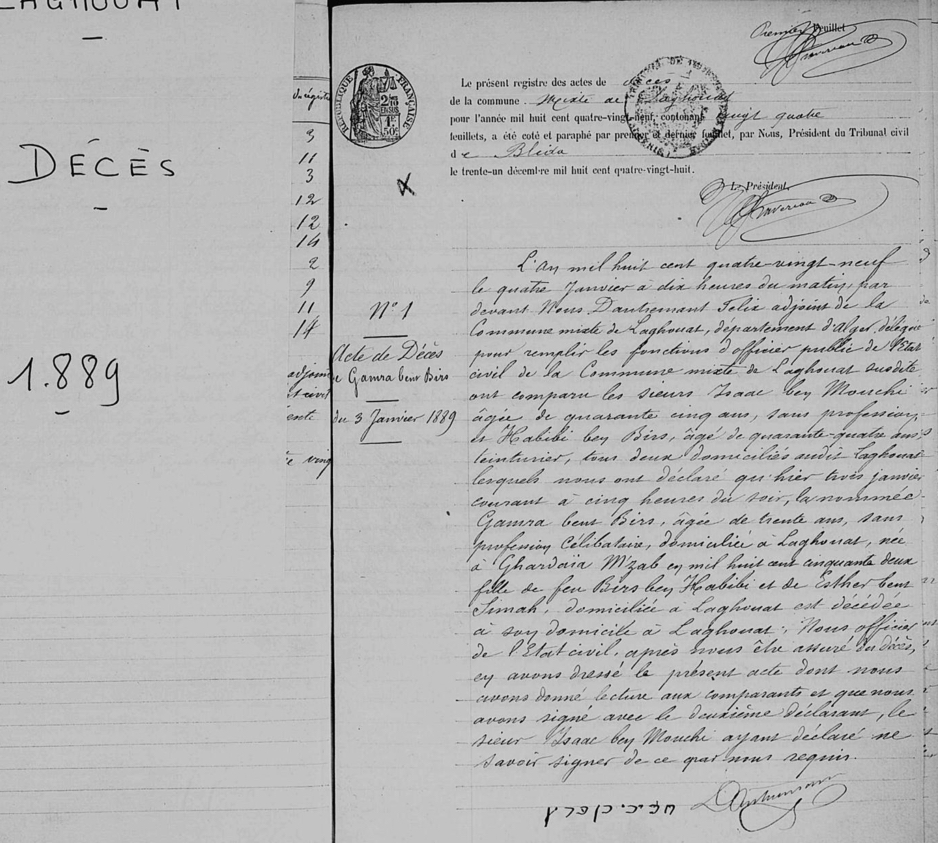 LAGHOUAT
DÉCÈS
1.889
3
11
3
12
12
14
2
9
11
14
adjoin
et civil
ente
e ving
Premier Feuillet
RÉPUBLIQUE FRANÇAISE
Le présent registre des actes de décès
de la commune mixte de Laghouat
pour l'année mil huit cent quatre-vingt-neuf, contenant vingt quatre
feuillets, a été coté et paraphé par premier et dernier feuillet, par Nous, Président du Tribunal civil
de Blida
le trente-un décembre mil huit cent quatre-vingt-huit.
Le Président,
N° 1
Acte de Décès
de Gamra bent Birs
du 3 Janvier 1889
L'an mil huit cent quatre-vingt-neuf
le quatre Janvier à dix heures du matin, par
devant Nous Dautremant Felix adjoint de la
Commune mixte de Laghouat, département d'Alger, délégué
pour remplir les fonctions d'officier public de l'Etat
civil de la Commune mixte de Laghouat susdite
ont comparu les sieurs Isaac ben Mouchi
âgée de quarante cinq ans, sans profession,
et Habibi ben Birs, âgé de quarante-quatre ans,
teinturier, tous deux domiciliés audit Laghouat
lesquels nous ont déclaré qu'hier trois janvier
courant à cinq heures du soir, la nommée
Gamra bent Birs, âgée de trente ans, sans
profession, Célibataire, domiciliée à Laghouat, née
à Ghardaïa M'zab en mil huit cent cinquante deux
fille de feu Birs ben Habibi et de Esther bent
Simah, domiciliée à Laghouat est décédée
à son domicile à Laghouat. Nous officier
de l'Etat civil, après nous être assuré du décès,
en avons dressé le présent acte dont nous
avons donné lecture aux comparants et que nous
avons signé avec le deuxième déclarant, le
sieur Isaac ben Mouchi ayant déclaré ne
savoir signer de ce par nous requis.